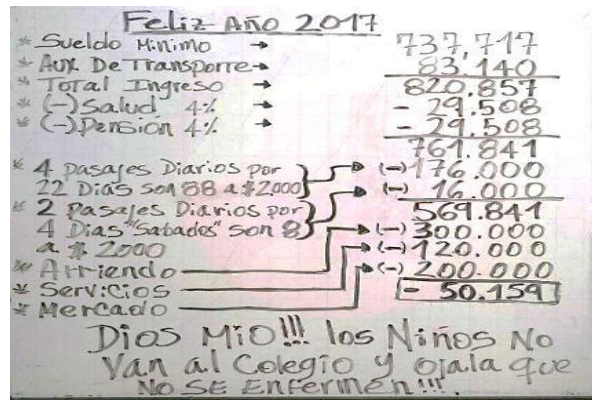 Feliz Año 2017
* Sueldo Minimo → 737,717
* Aux De Transporte → 83.140
* Total Ingreso → 820.857
* (-) Salud 4% → - 29.508
* (-) Pensión 4% → - 29.508
761.841
* 4 Pasajes Diarios por (-) 176.000
22 Dias son 88 a $2000 (-) 16.000
* 2 Pasajes Diarios por 569.841
4 Dias "Sabados" son 8 (-) 300.000
a $ 2000 (-) 120.000
* Arriendo (-) 200.000
* Servicios - 50.159
* Mercado
Dios Mio!!! los Niños No
Van al Colegio y Ojala que
No SE Enfermen!!!.